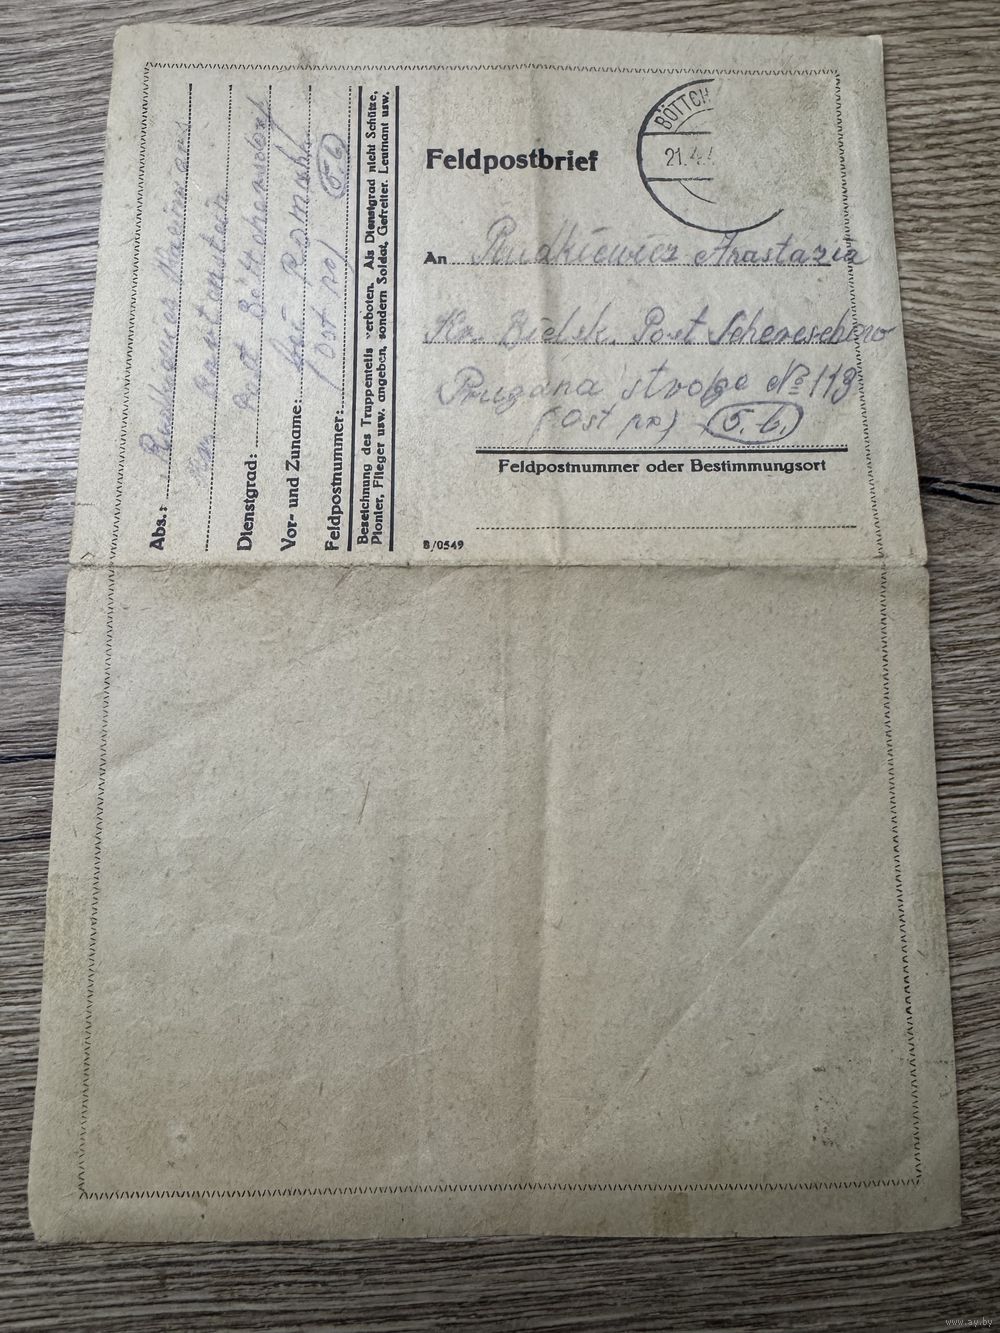 Feldpostbrief
BÖTTCH
21.4.4
An Rudkiewicz Anastazia
Kr. Bielsk. Post Schereschewo
Prugana strasse № 113
(Ost pr) (5.b.)
Feldpostnummer oder Bestimmungsort
B/0549
Abs.:
Kr. Rastenstein
Dienstgrad: Post Böttchersdorf
Vor- und Zuname: bei
Feldpostnummer: (Ost pr) (5.b)
Bezeichnung des Truppenteils verboten. Als Dienstgrad nicht Schütze,
Pionier, Flieger usw. angeben, sondern Soldat, Gefreiter. Leutnant usw.
www.ay.by